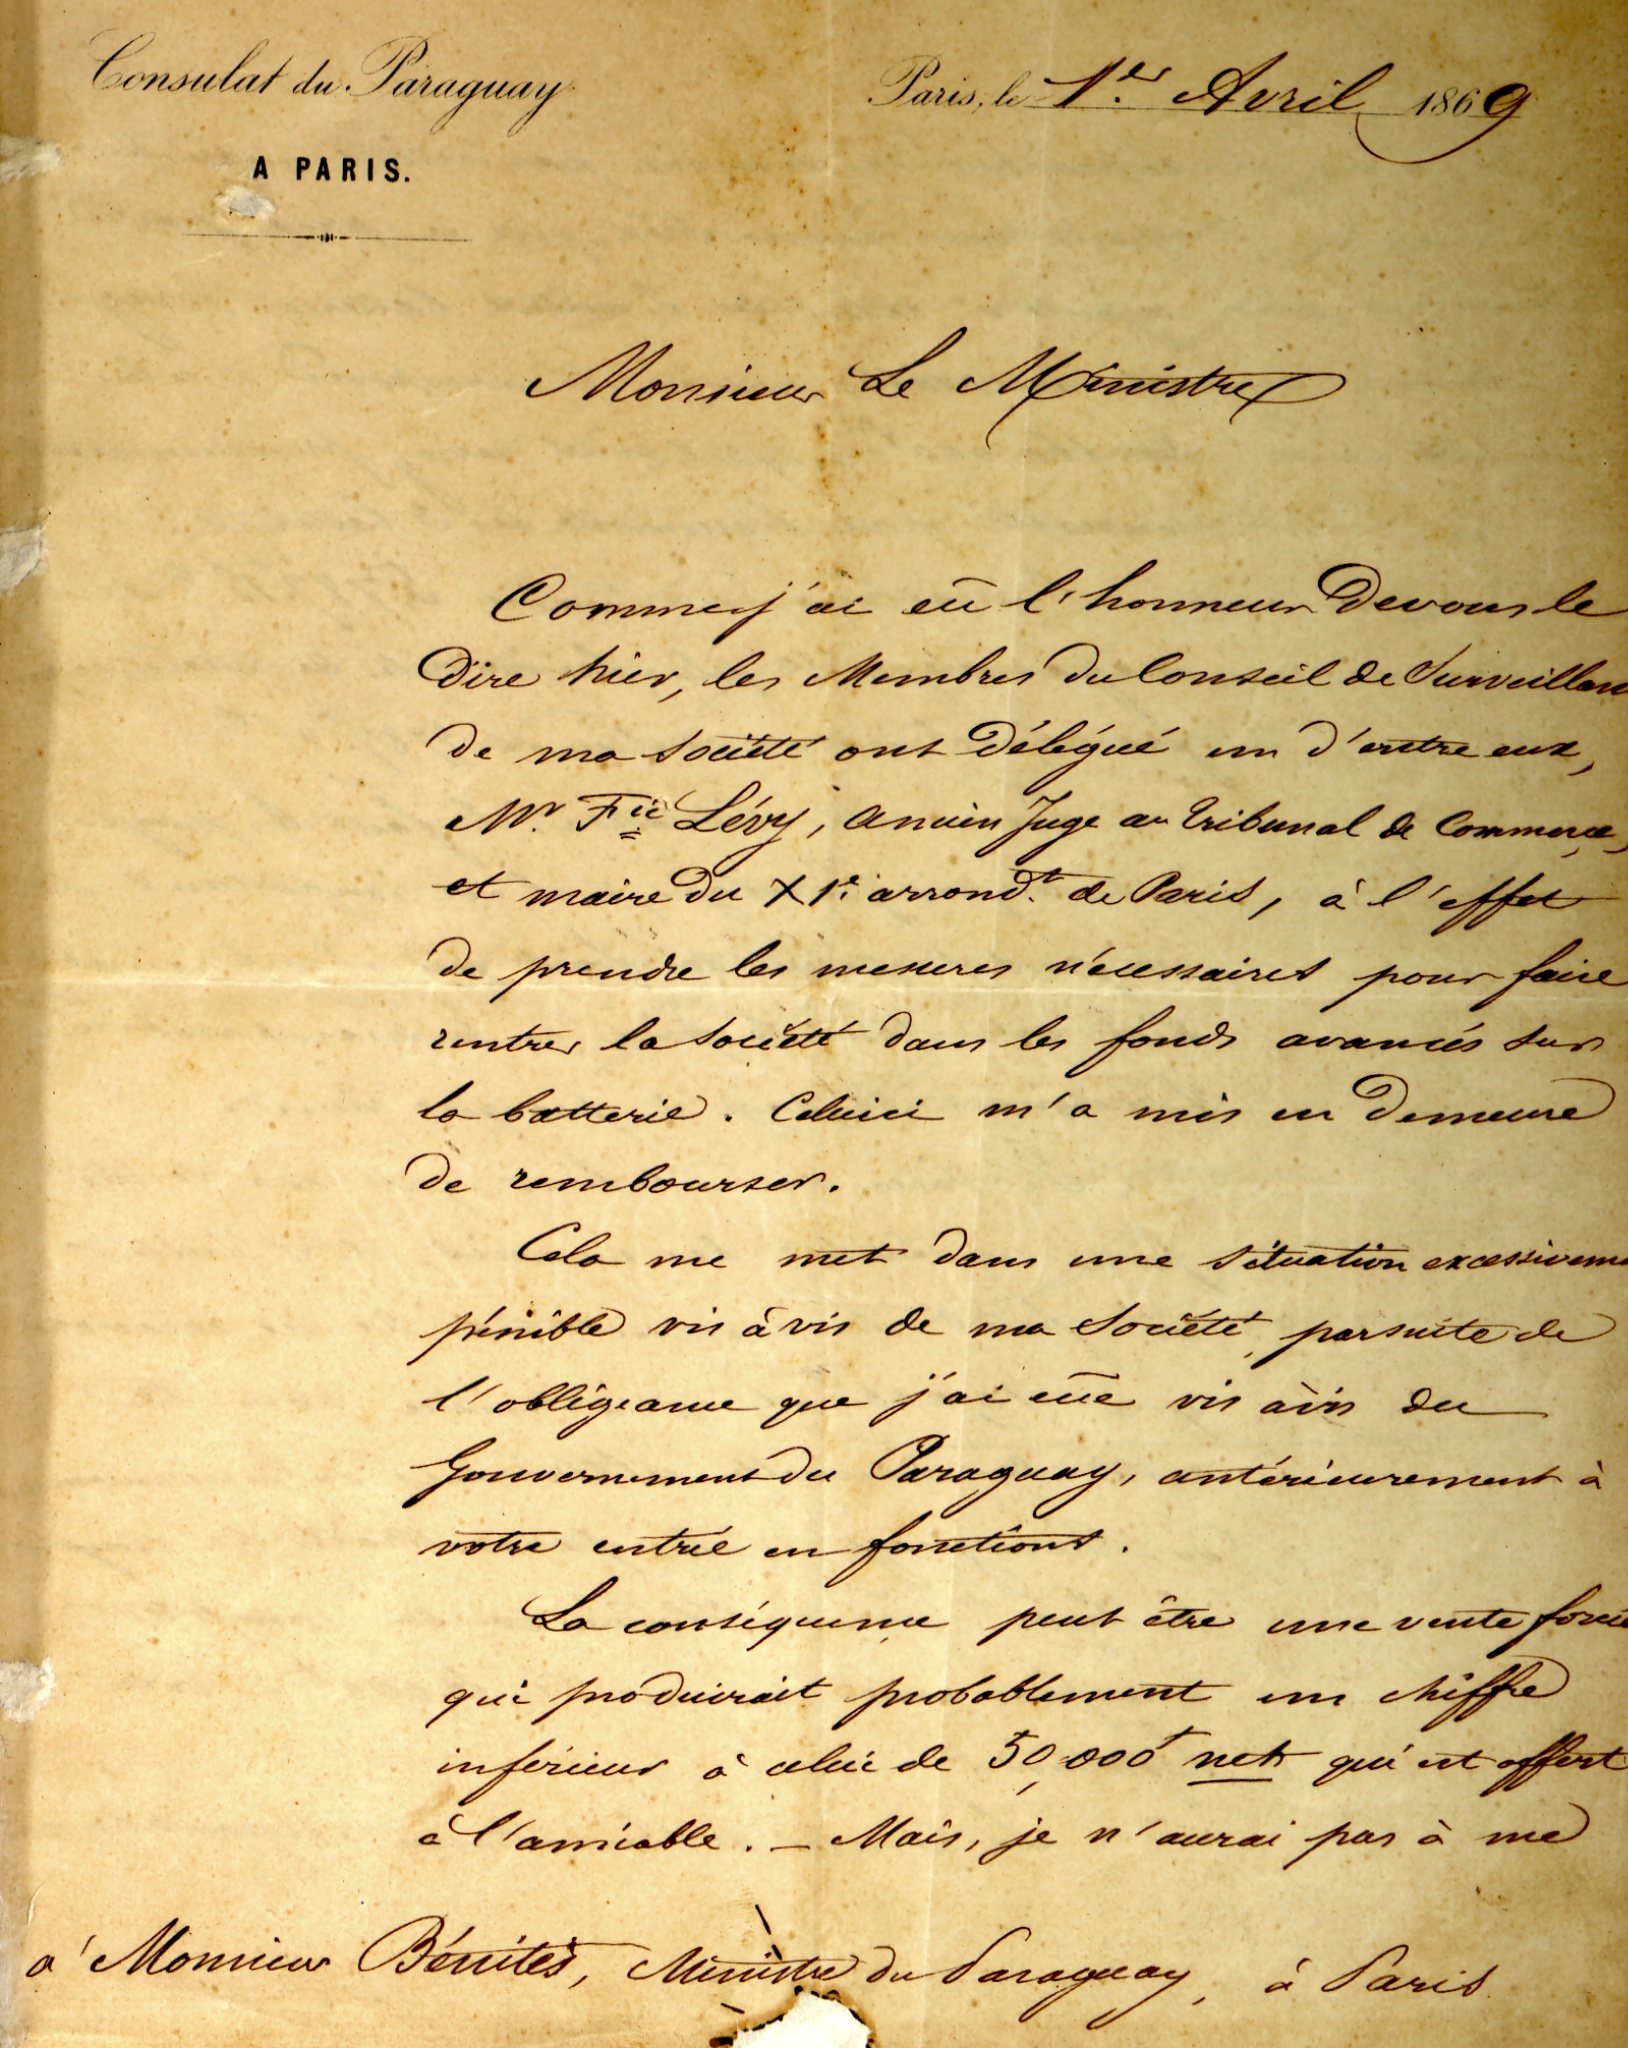 Consulat du Paraguay
A PARIS.
Paris, le 1.er Avril 1869
Monsieur Le Ministre
Comme j'ai eû l'honneur de vous le
dire hier, les Membres du Conseil de Surveillan
de ma Société ont délégué un d'entre eux,
Mr. Fic Lévy, ancien Juge au Tribunal de Commerce,
et maire du XIe. arrondt. de Paris, à l'effet
de prendre les mesures nécessaires pour faire
rentrer la Société dans les fonds avancés sur
la batterie. Celuici m'a mis en demeure
de rembourser.
Cela me met dans une situation excessiveme
pénible vis à vis de ma Société, par suite de
l'obligeance que j'ai eûe vis à vis du
Gouvernement du Paraguay, antérieurement à
votre entrée en fonctions.
La conséquence peut être une vente forcée
qui produirait probablement un chiffre
inférieur à celui de 50,000f net qui est offert
à l'amiable. — Mais, je n'aurai pas à me
à Monsieur Bénitès, Ministre du Paraguay, à Paris